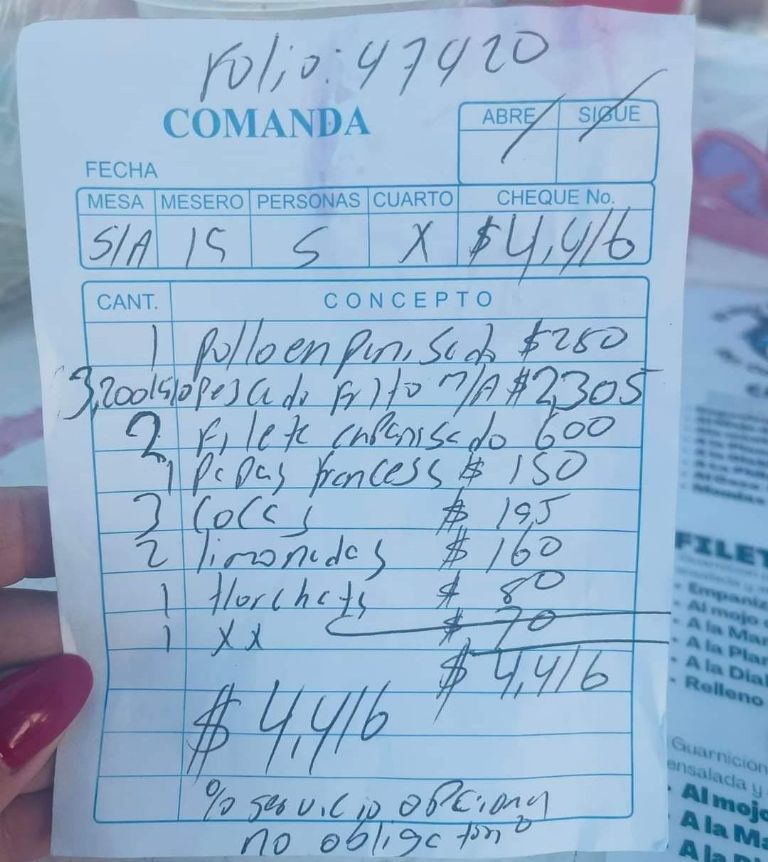 Folio: 47420
COMANDA
ABRE SIGUE
FECHA
MESA MESERO PERSONAS CUARTO CHEQUE No.
S/A 15 5 X $4,416
CANT. CONCEPTO
1 Pollo enpanisado $250
pescado frito M/A $2,305
2 Filete enpanisado 600
1 papas frances $ 150
3 Cocas $ 195
2 limonadas $ 160
1 Horchata $ 80
1 XX $ 70
$ 4,416
$ 4,416
% servicio opcional
no obligatorio
FILET
Empaniz
Al mojo
A la Mar
A la Plan
A la Dial
Relleno
Guarnicion
ensalada y
Al mojo
A la Ma